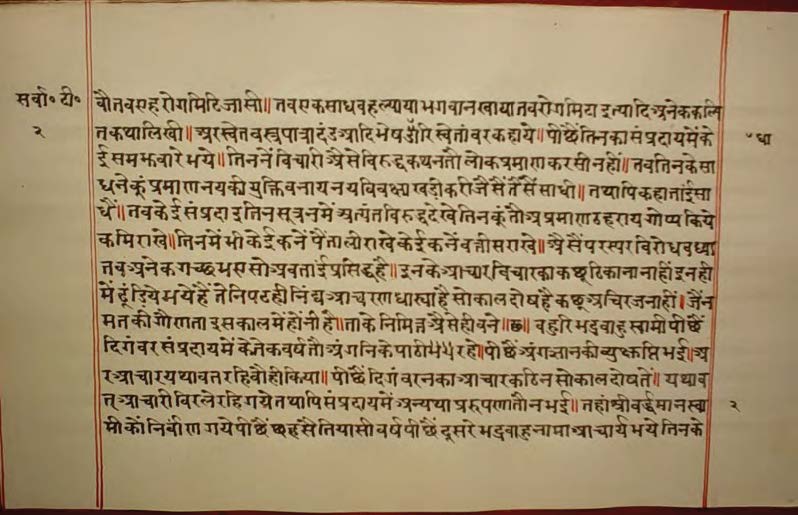 सर्वा॰ टी॰
२
वौ तव एह रोग मिटि जासी॥ तव एक साध वहल्याया भगवान खाया तव रोग मिटा इत्यादि अनेक कल्पि
त कथा लिखी॥ अर स्वेत वस्त्र पात्रा दंड आदि भेष धारि स्वेतांवर कहाये॥ पीछैं तिनका संप्रदायमें के
ई समझवार भये॥ तिननें विचारी अैसे विरुद्ध कथनतौ लोक प्रमाण करसी नहीं॥ तव तिनके सा
धनेकूं प्रमाण नयकी युक्ति वनाय नयविवक्ष्या खडी करी जैसैं तैसैं साधी॥ तथापि कहातांई सा
धैं॥ तव केई संप्रदाइ तिन सूत्रनमें अत्यंत विरुद्ध देखे तिनकूं तौ अप्रमाण ठहराय गोप्य किये
कमि राखे॥ तिनमें भी केईकनें पैंतालीस राखे केईकनें वत्तीस राखे॥ अैसैं परस्पर विरोध वध्या
तव अनेक गच्छ भए सो अवतांई प्रसिद्ध है॥ इनके आचार विचारका कछू ठिकाना नाहीं इनही
में ढूंढिये भये हैं ते निपट ही निंद्य आचरण धाऱ्या है सो कालदोष है कछू अचिरज नाहीं। जैन
मतकी गौणता इस कालमें होनी है॥ ताके निमित्त अैसे ही वने॥छ॥ वहुरि भद्रवाहु स्वामी पीछैं
दिगंवर संप्रदायमें केतेक वर्ष तौ अंगनिके पाठी रहे॥ पीछैं अंगज्ञानकी व्युछित्ति भई॥ अ
र आचार यथावत रहिवोही किया॥ पीछैं दिगंवरनका आचार कठिन सो कालदोषतें॥ यथाव
त् आचारी विरले रहि गये तथापि संप्रदायमें अन्यथा प्ररुपणा तौ न भई॥ तहां श्री वर्द्धमान स्वा
मीकों निर्वाण गये पीछैं छहसै तियासी वर्ष पीछैं दूसरे भद्रवाहु नामा आचार्य भये तिनके
धा
२